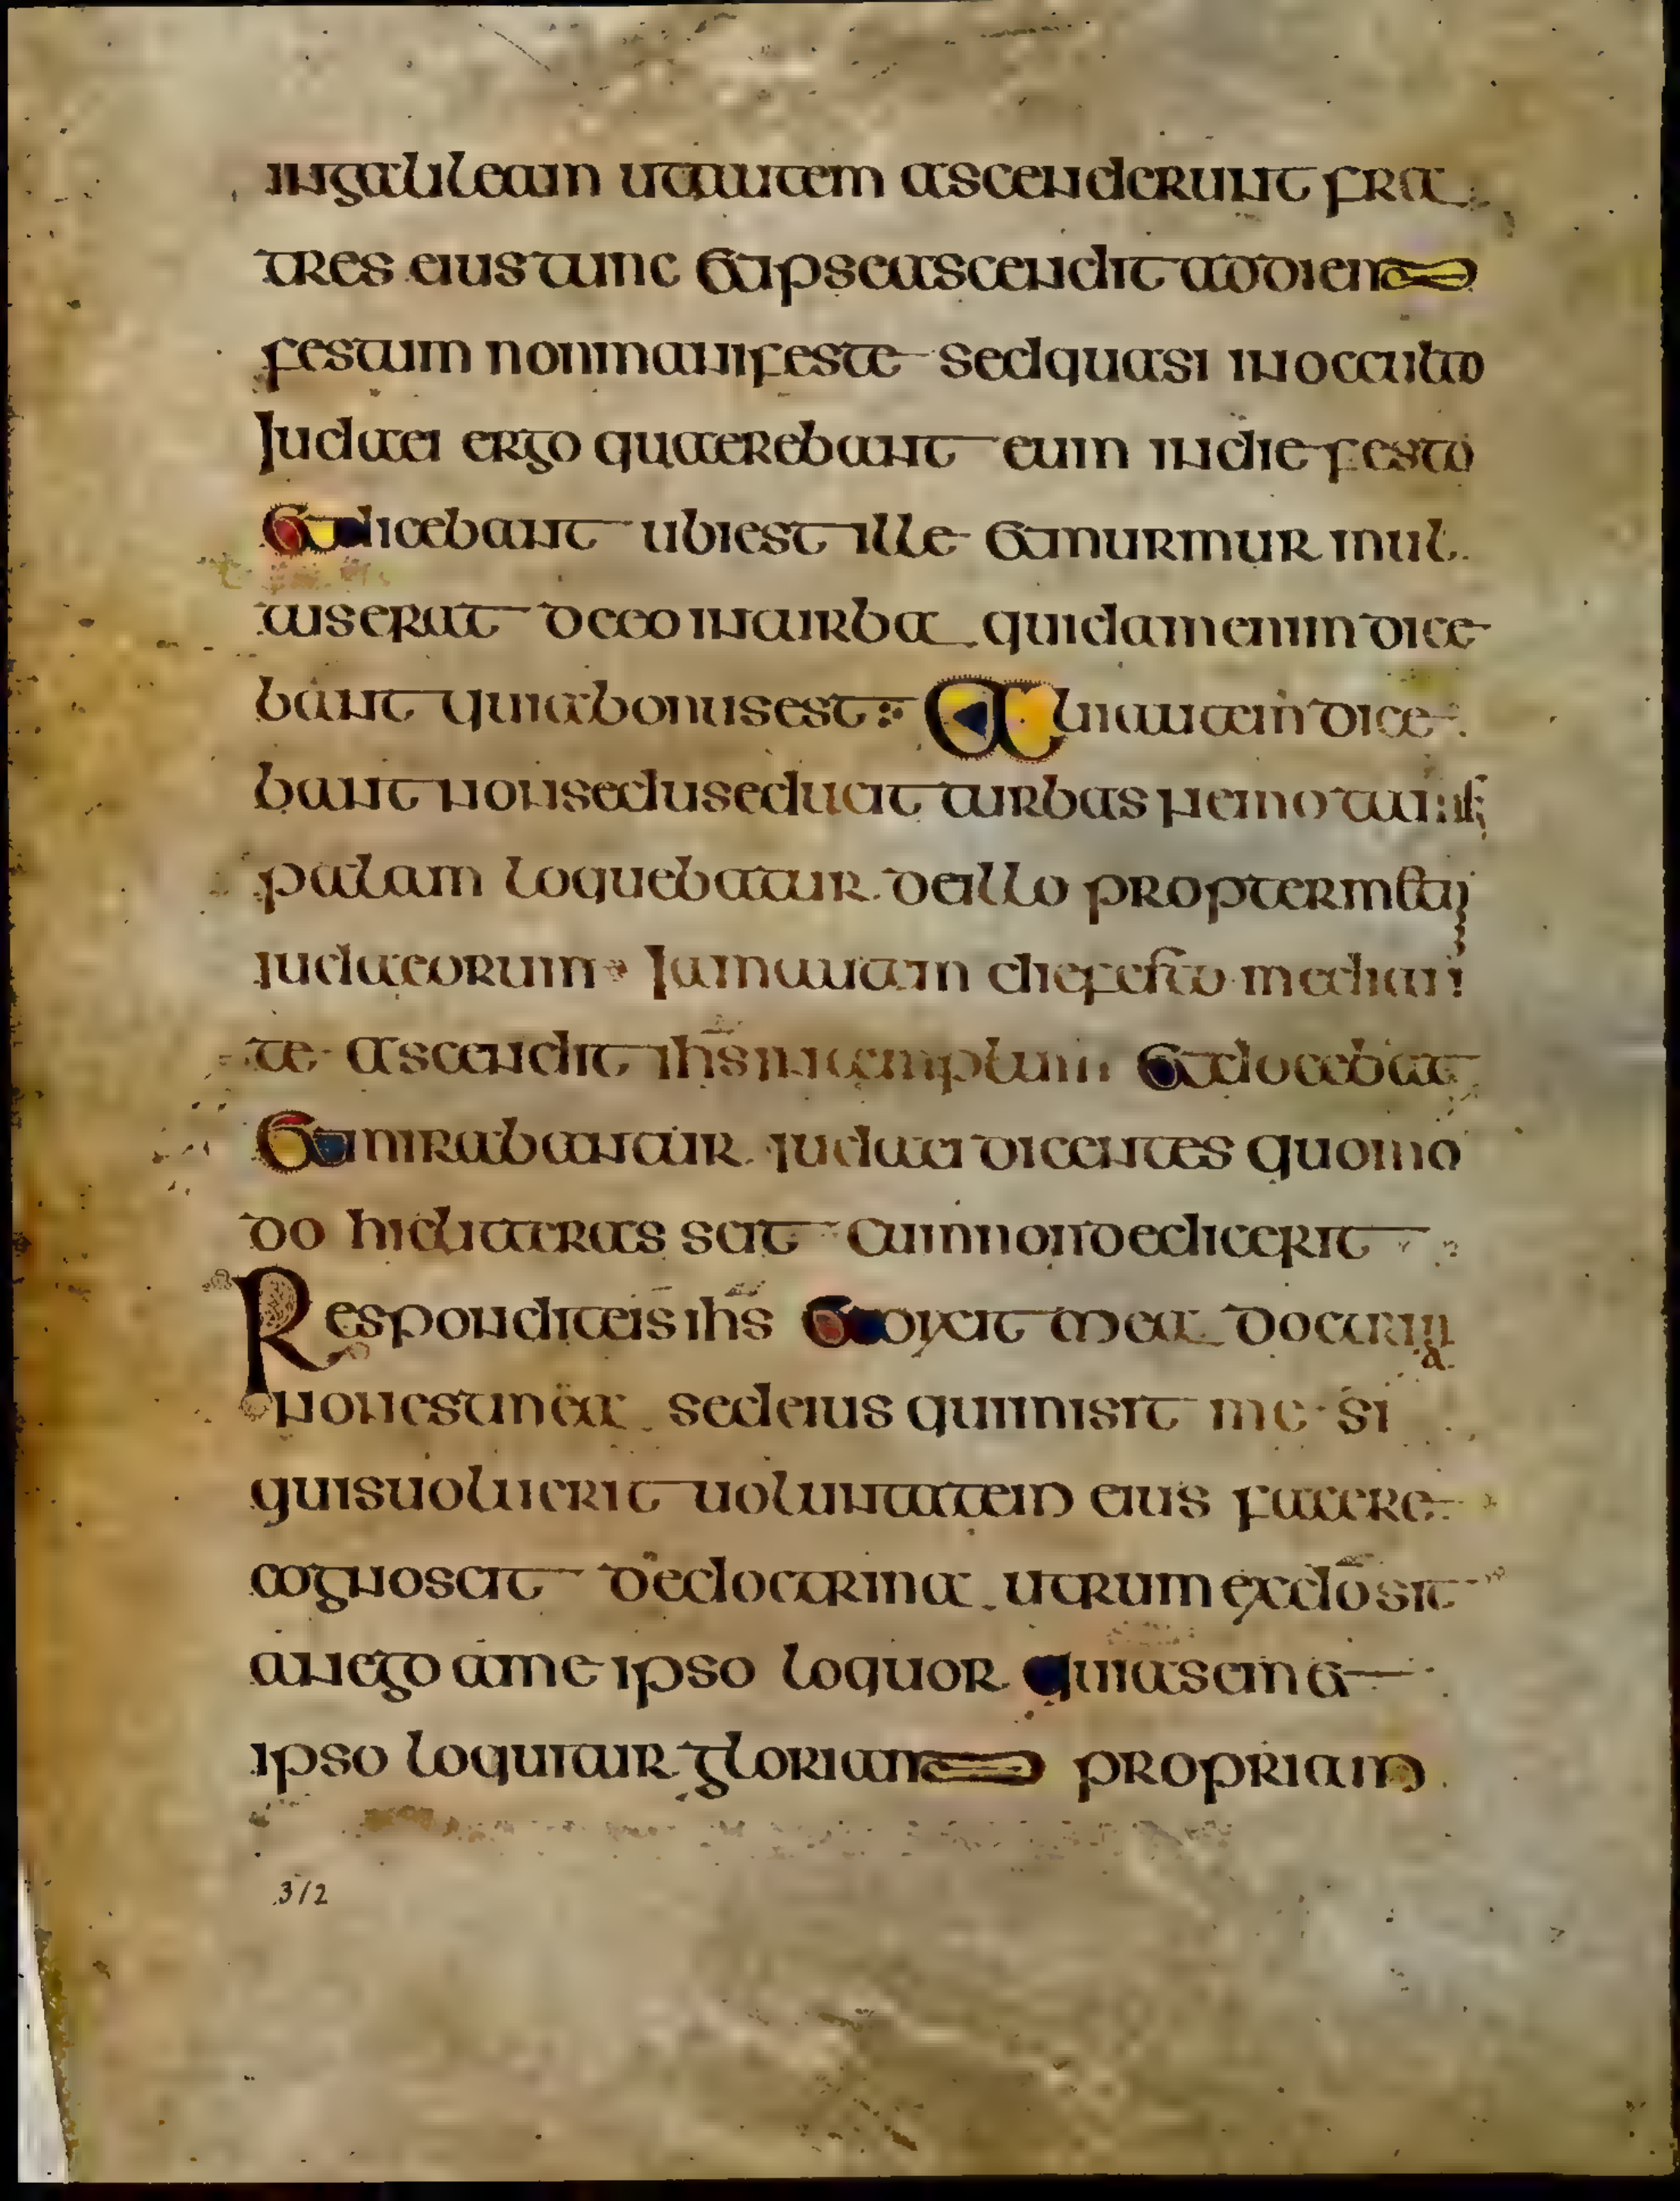 in galileam ut autem ascenderunt fra
tres eius tunc et ipse ascendit ad diem
festum non manifeste sed quasi in occulto
Iudaei ergo quaerebant eum in die festo
Et dicebant ubi est ille et murmur mul
tus erat de eo in turba quidam enim dice
bant quia bonus est Alii autem dice
bant non sed seducit turbas nemo tam
palam loquebatur de illo propter metu
iudaeorum Iam autem die festo median
te ascendit ihs in templum Et docebat
Et mirabantur iudaei dicentes quomo
do hic litteras scit cum non dedicerit
Respondit eis ihs Et dixit mea doctrin
a
non est mea sed eius qui misit me si
quis voluerit uoluntatem eius facere
cognoscit de doctrina utrum ex do sit
an ego a me ipso loquor Qui a sem et
ipso loquitur gloriam propriam
312